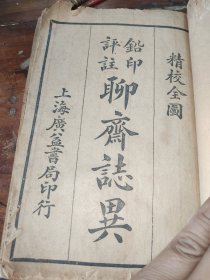 精校全圖
鉛印
評註
聊齋誌異
上海廣益書局印行